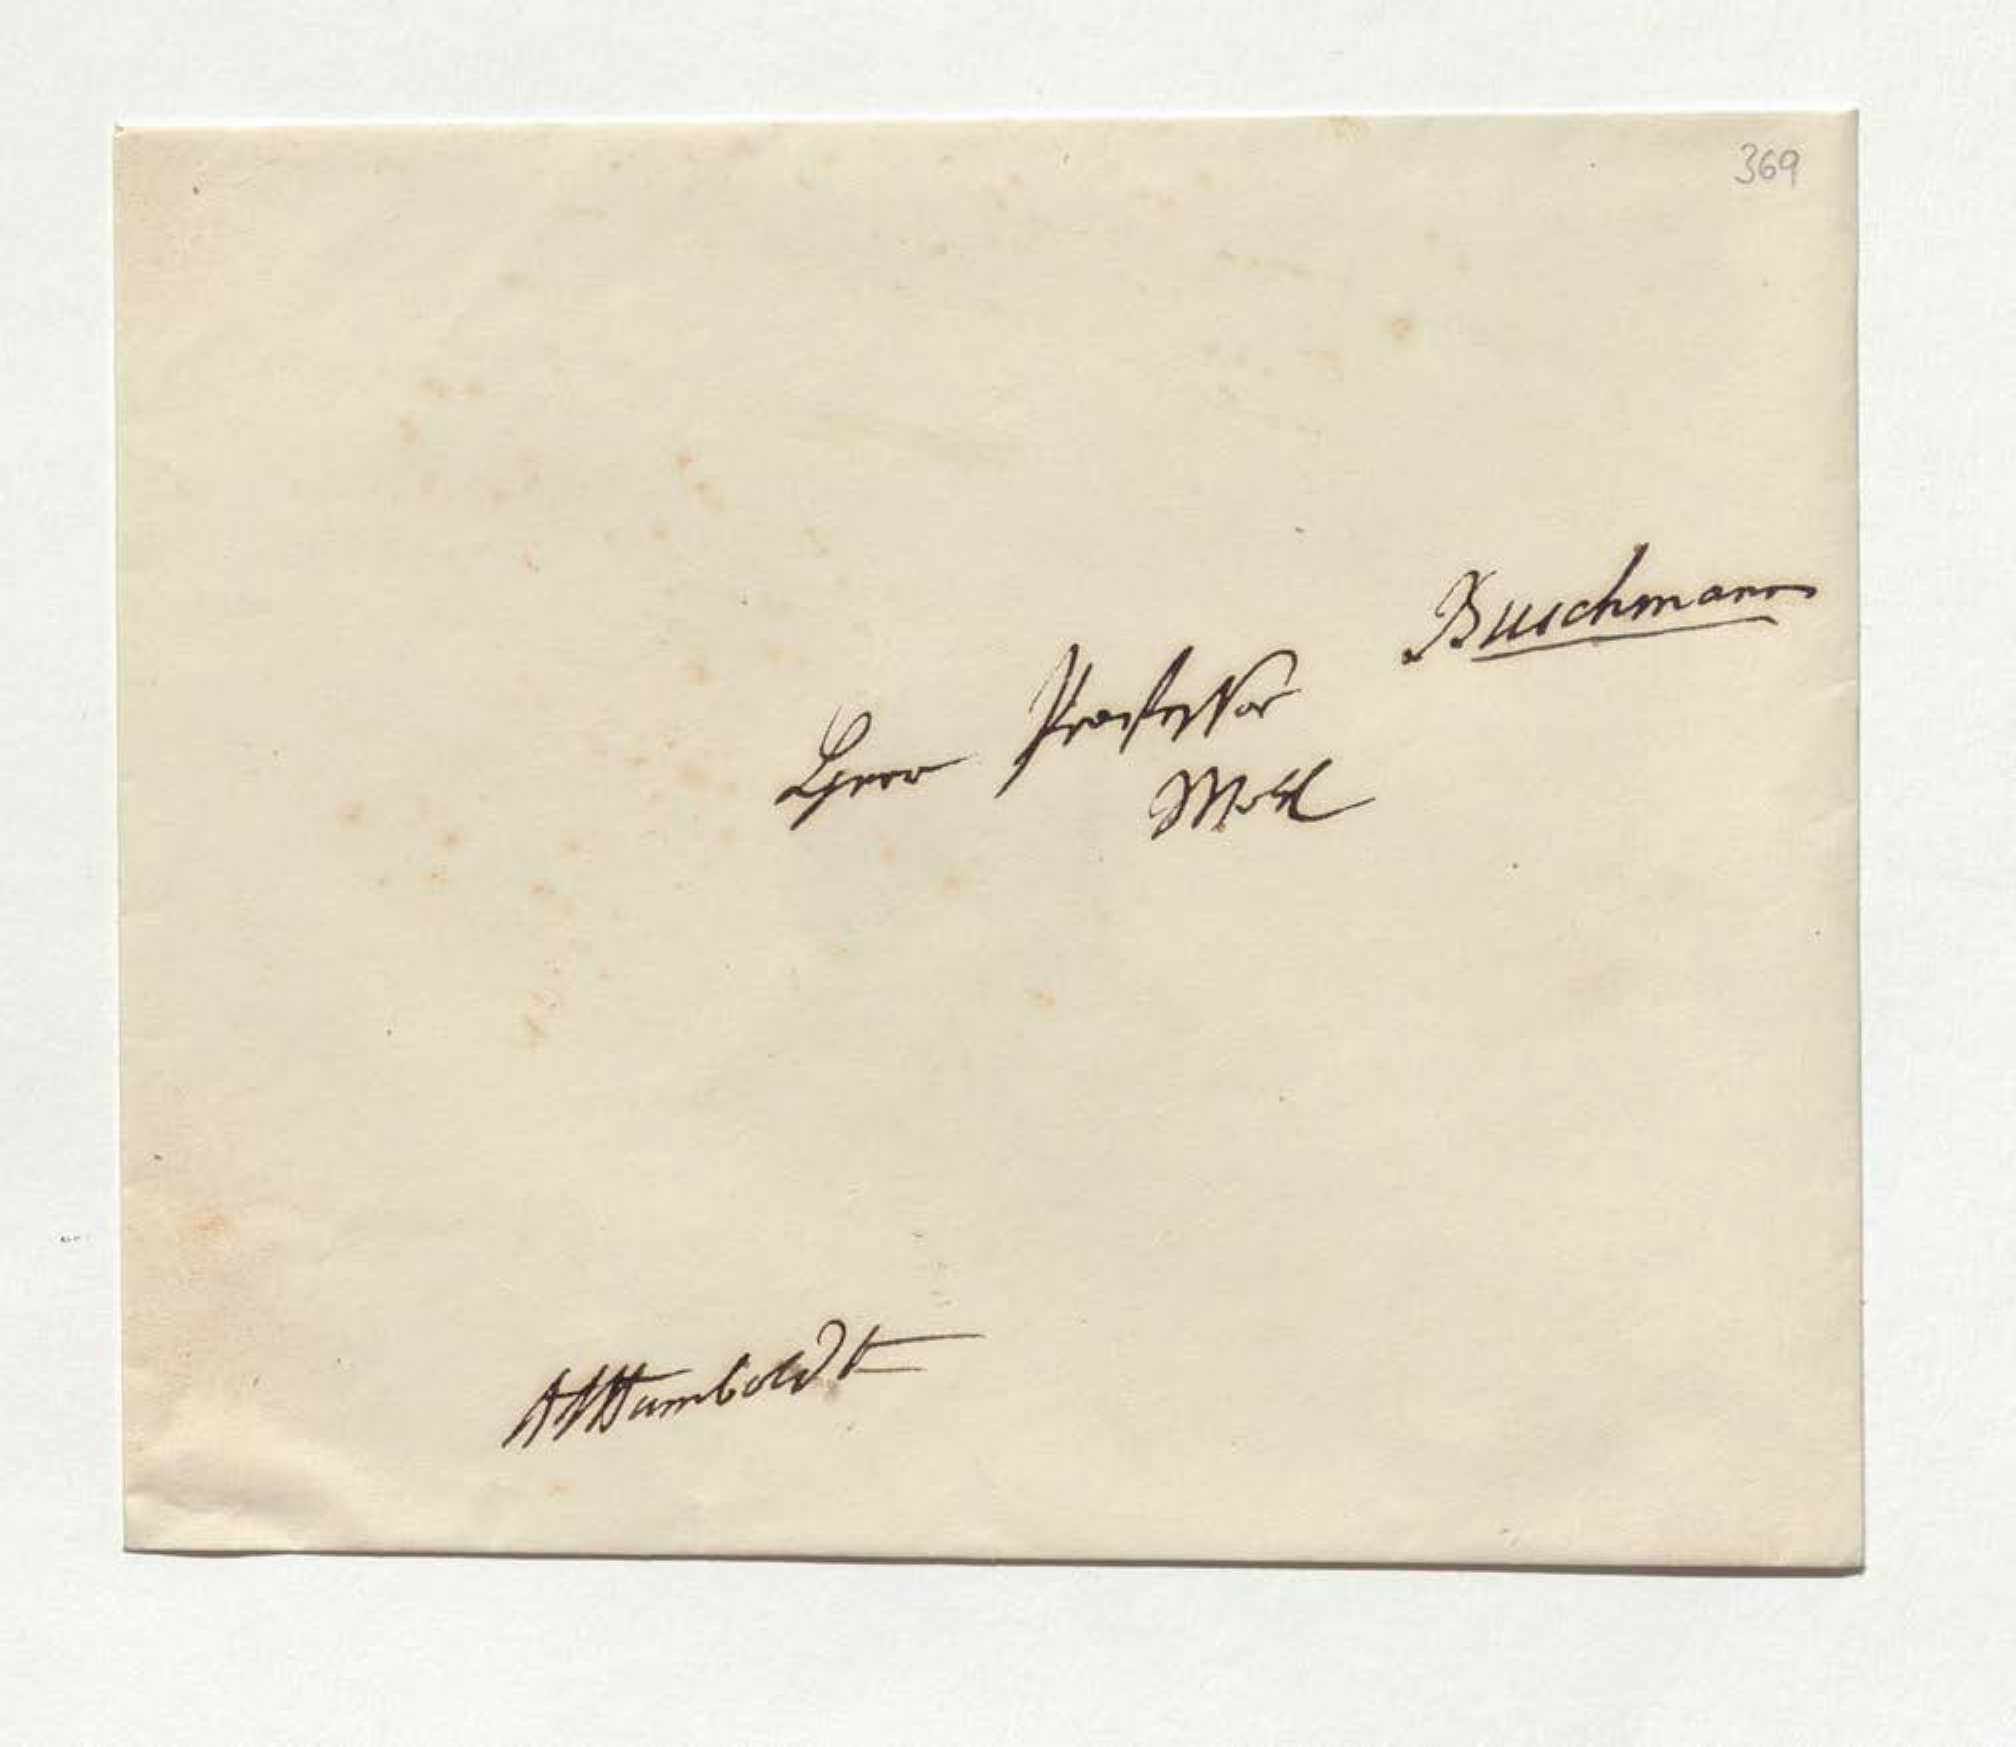 369
Herrn Professor Buschmann
Wohl
AvHumboldt